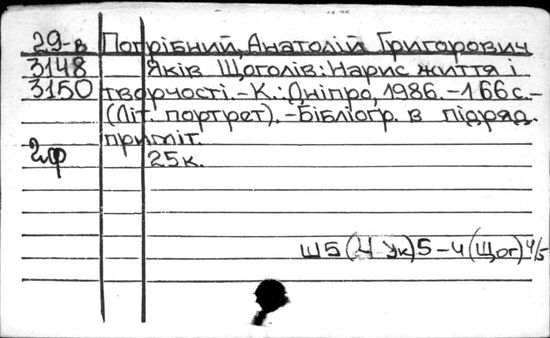 29-в Погрібний, Анатолій Григорович
3148 Яків Щоголів: Нарис життя і
3150 творчості. - К.: Дніпро, 1986. - 166 с. -
(Літ. портрет). - Бібліогр. в підряд.
приміт.
2ф 25к.
Ш5(4Ук)5-4(Щог)4/5